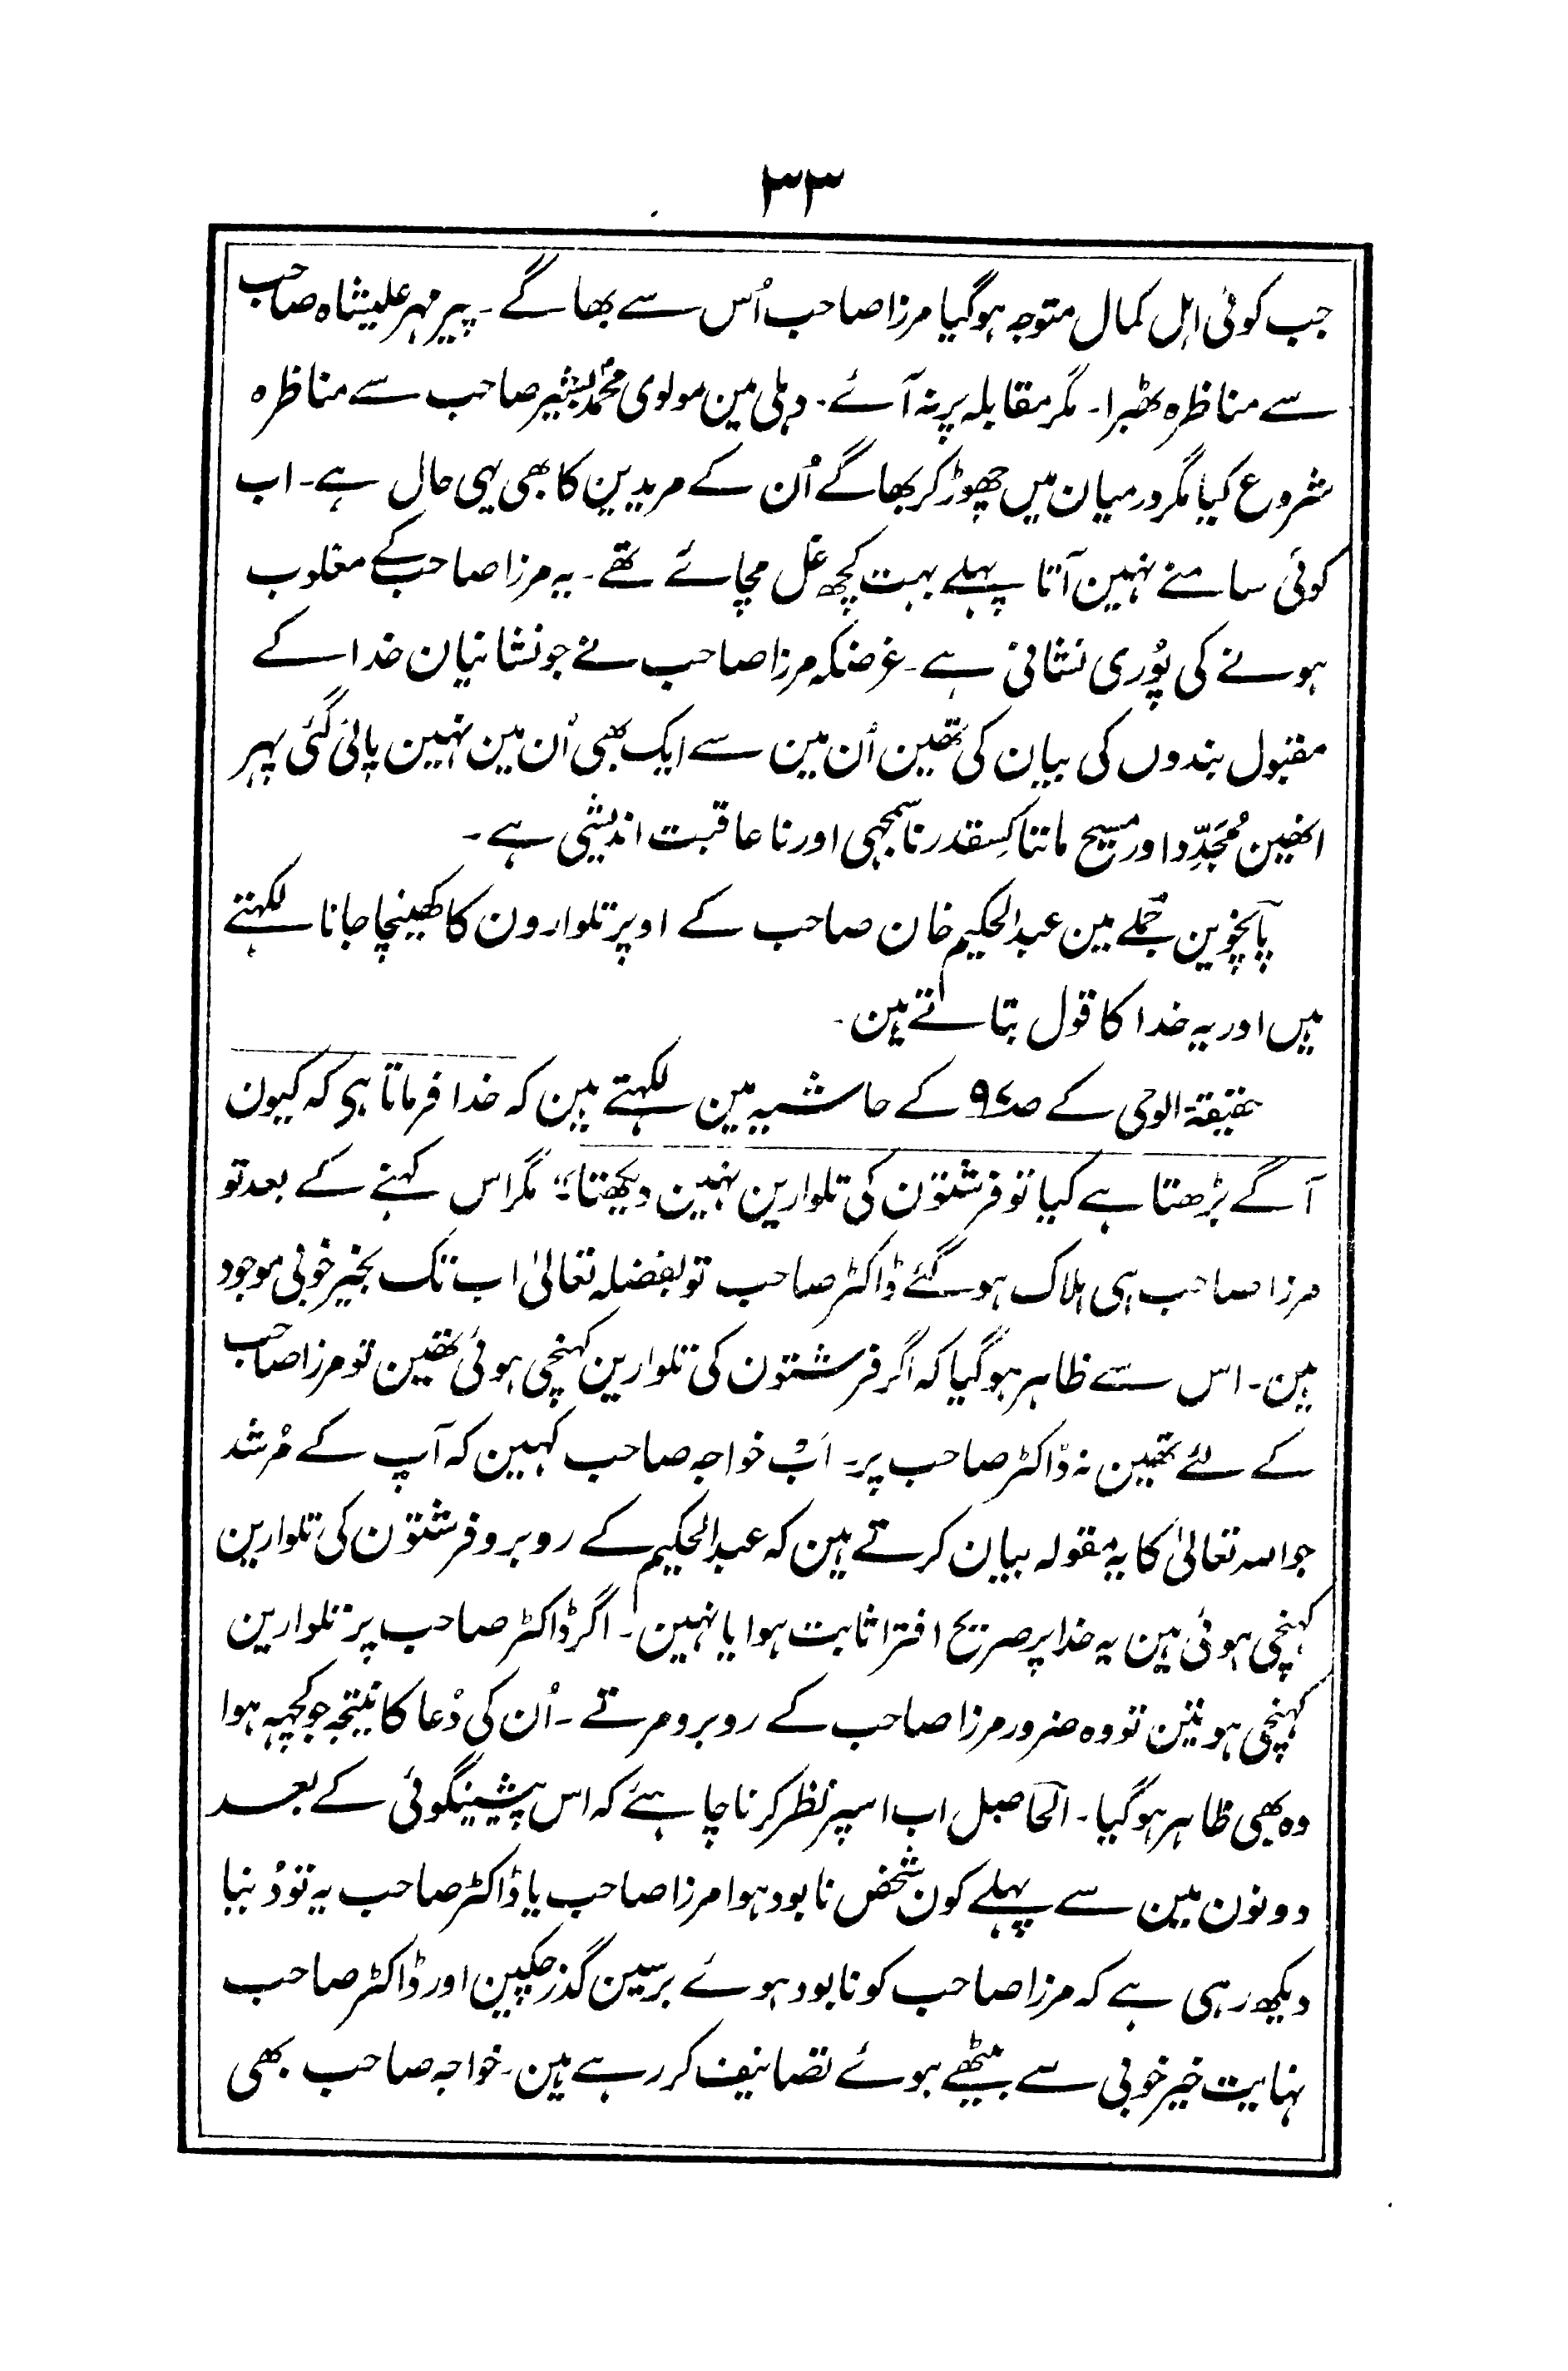 ۳۳
جب کوئی اہل کمال متوجہ ہوگیا مرزا صاحب اُس سے بھاگے۔ پیر مہر علیشاہ صاحب
سے مناظرہ ٹھہرا۔ مگر مقابلہ پر نہ آئے۔ دہلی مین مولوی محمّد بشیر صاحب سے مناظرہ
شروع کیا مگر درمیان میں چھوڑ کر بھاگے اُن کے مریدین کا بھی یہی حال ہے۔ اب
کوئی سامنے نہین آتا پہلے بہت کچھ غل مچائے تھے۔ یہ مرزا صاحب کے مغلوب
ہونے کی پُوری نشانی ہے۔ غرضکہ مرزا صاحب نے جو نشانیان خدا کے
مقبول بندوں کی بیان کی تھین اُن مین سے ایک بھی اُن مین نہین پائی گئی پہر
انھین مُجَدِّد اور مسیح ماننا کِسقدر ناسمجہی اور ناعاقبت اندیشی ہے۔
پانچوین جُملے مین عبدالحکیم خان صاحب کے اوپر تلوارون کا کھینچا جانا لکہتے
ہیں اور یہ خدا کا قول بتاتے ہین۔
حقیقۃ الوحی کے صـ۹۷ کے حاشیہ مین لکہتے ہین کہ خدا فرماتا ہی کہ کیون
آگے بڑھتا ہے کیا تو فرشتون کی تلوارین نہین دیکھتا“ مگر اس کہنے کے بعد تو
مرزا صاحب ہی ہلاک ہو گئے ڈاکٹر صاحب تو بفضلہ تعالیٰ اب تک بخیر خوبی موجود
ہین۔ اس سے ظاہر ہوگیا کہ اگر فرشتون کی تلوارین کہنچی ہوئی تھین تو مرزا صاحب
کے لئے تھین نہ ڈاکٹر صاحب پر۔ اَبْ خواجہ صاحب کہین کہ آپ کے مُرشد
جو اللہ تعالیٰ کا یہ مقولہ بیان کرتے ہین کہ عبدالحکیم کے روبرو فرشتون کی تلوارین
کہنچی ہوئی ہین یہ خدا پر صریح افترا ثابت ہوا یا نہین۔ اگر ڈاکٹر صاحب پر تلوارین
کہنچی ہوتین تو وہ ضرور مرزا صاحب کے روبرو مرتے۔ اُن کی دُعا کا نتیجہ جو کچہہ ہوا
وہ بھی ظاہر ہوگیا۔ الحاصل اب اسپر نظر کرنا چاہئے کہ اس پیشینگوئی کے بعد
دونون مین سے پہلے کون شخص نابود ہوا مرزا صاحب یا ڈاکٹر صاحب یہ تو دُنیا
دیکھ رہی ہے کہ مرزا صاحب کو نابود ہوئے برسین گذر چکین اور ڈاکٹر صاحب
نہایت خیر خوبی سے بیٹھے ہوئے تصانیف کر رہے ہین۔ خواجہ صاحب بھی